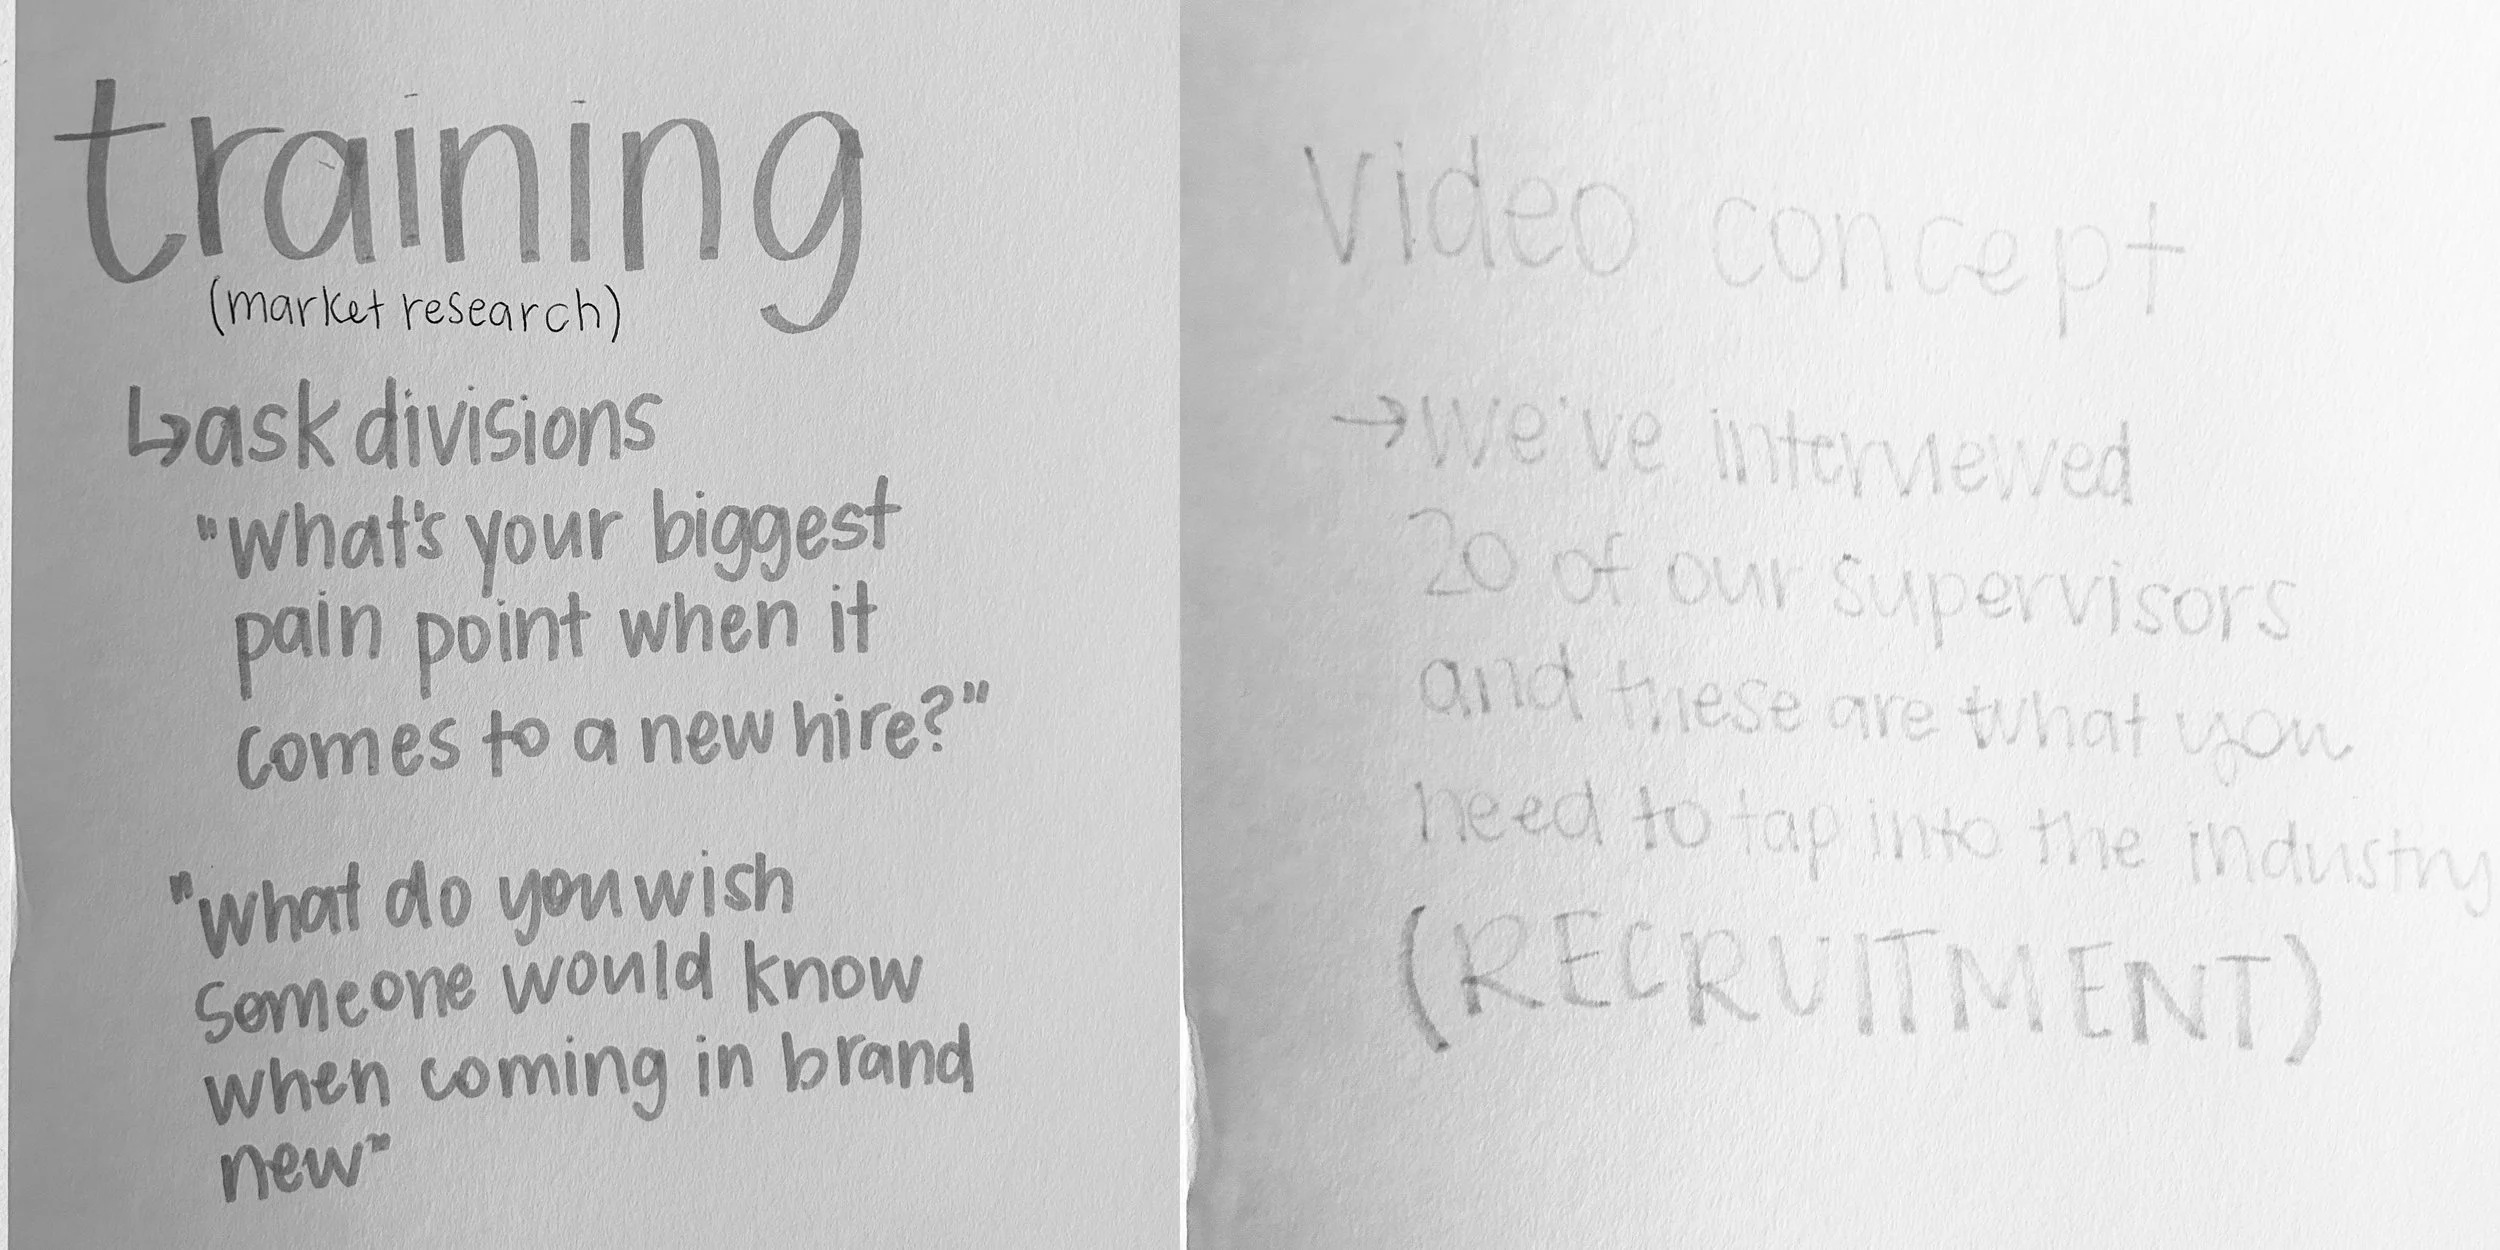 training
(market research)
↳ask divisions
"what's your biggest
pain point when it
comes to a new hire?"
"what do you wish
someone would know
when coming in brand
new"
Video concept
→we've interviewed
20 of our supervisors
and these are what you
need to tap into the industry
(RECRUITMENT)